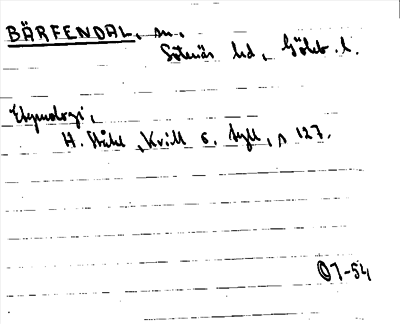 BÄRFENDAL, sn.
Sotenäs hd, Göteb. l.
Etymologi,
H. Ståhl, Kvill o. tyll, s 127.
OJ-54